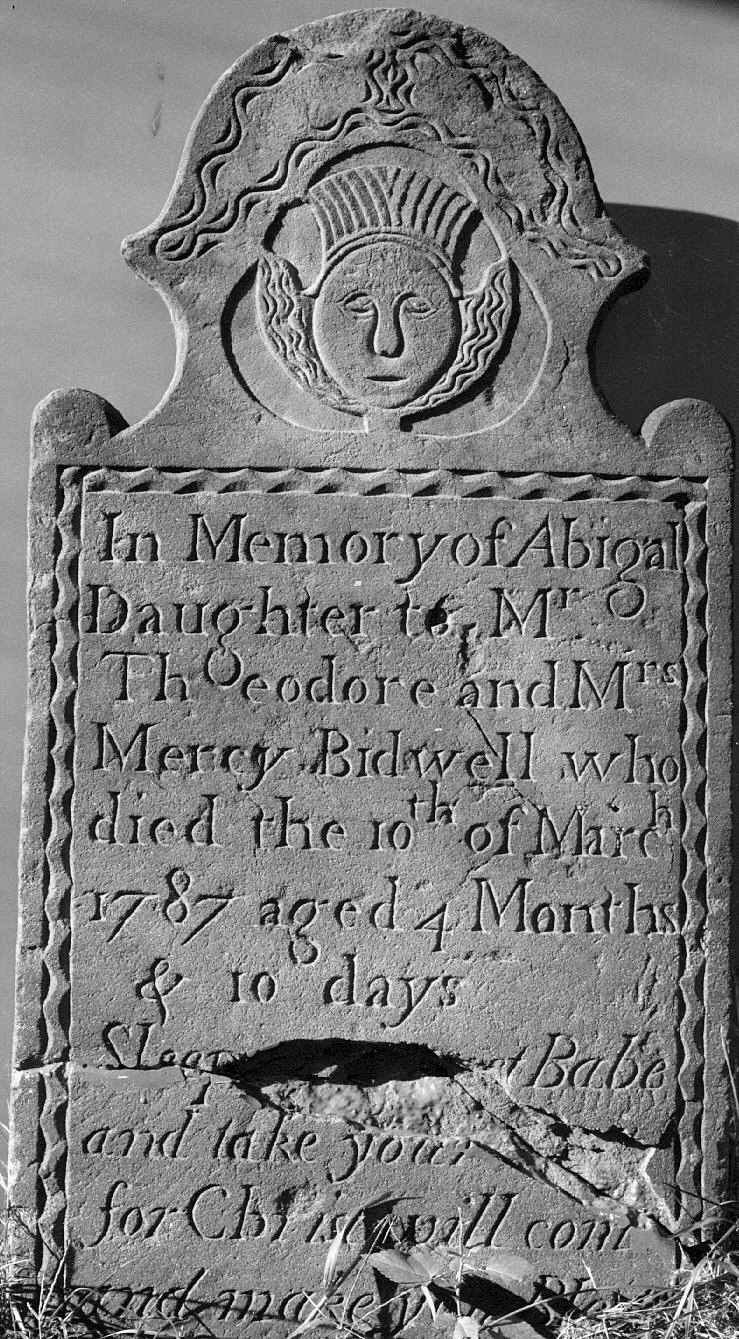 In Memory of Abigal
Daughter to Mr
Theodore and Mrs
Mercy Bidwell who
died the 10th of March
1787 aged 4 Months
& 10 days
Babe
and take your
for Christ will
and make